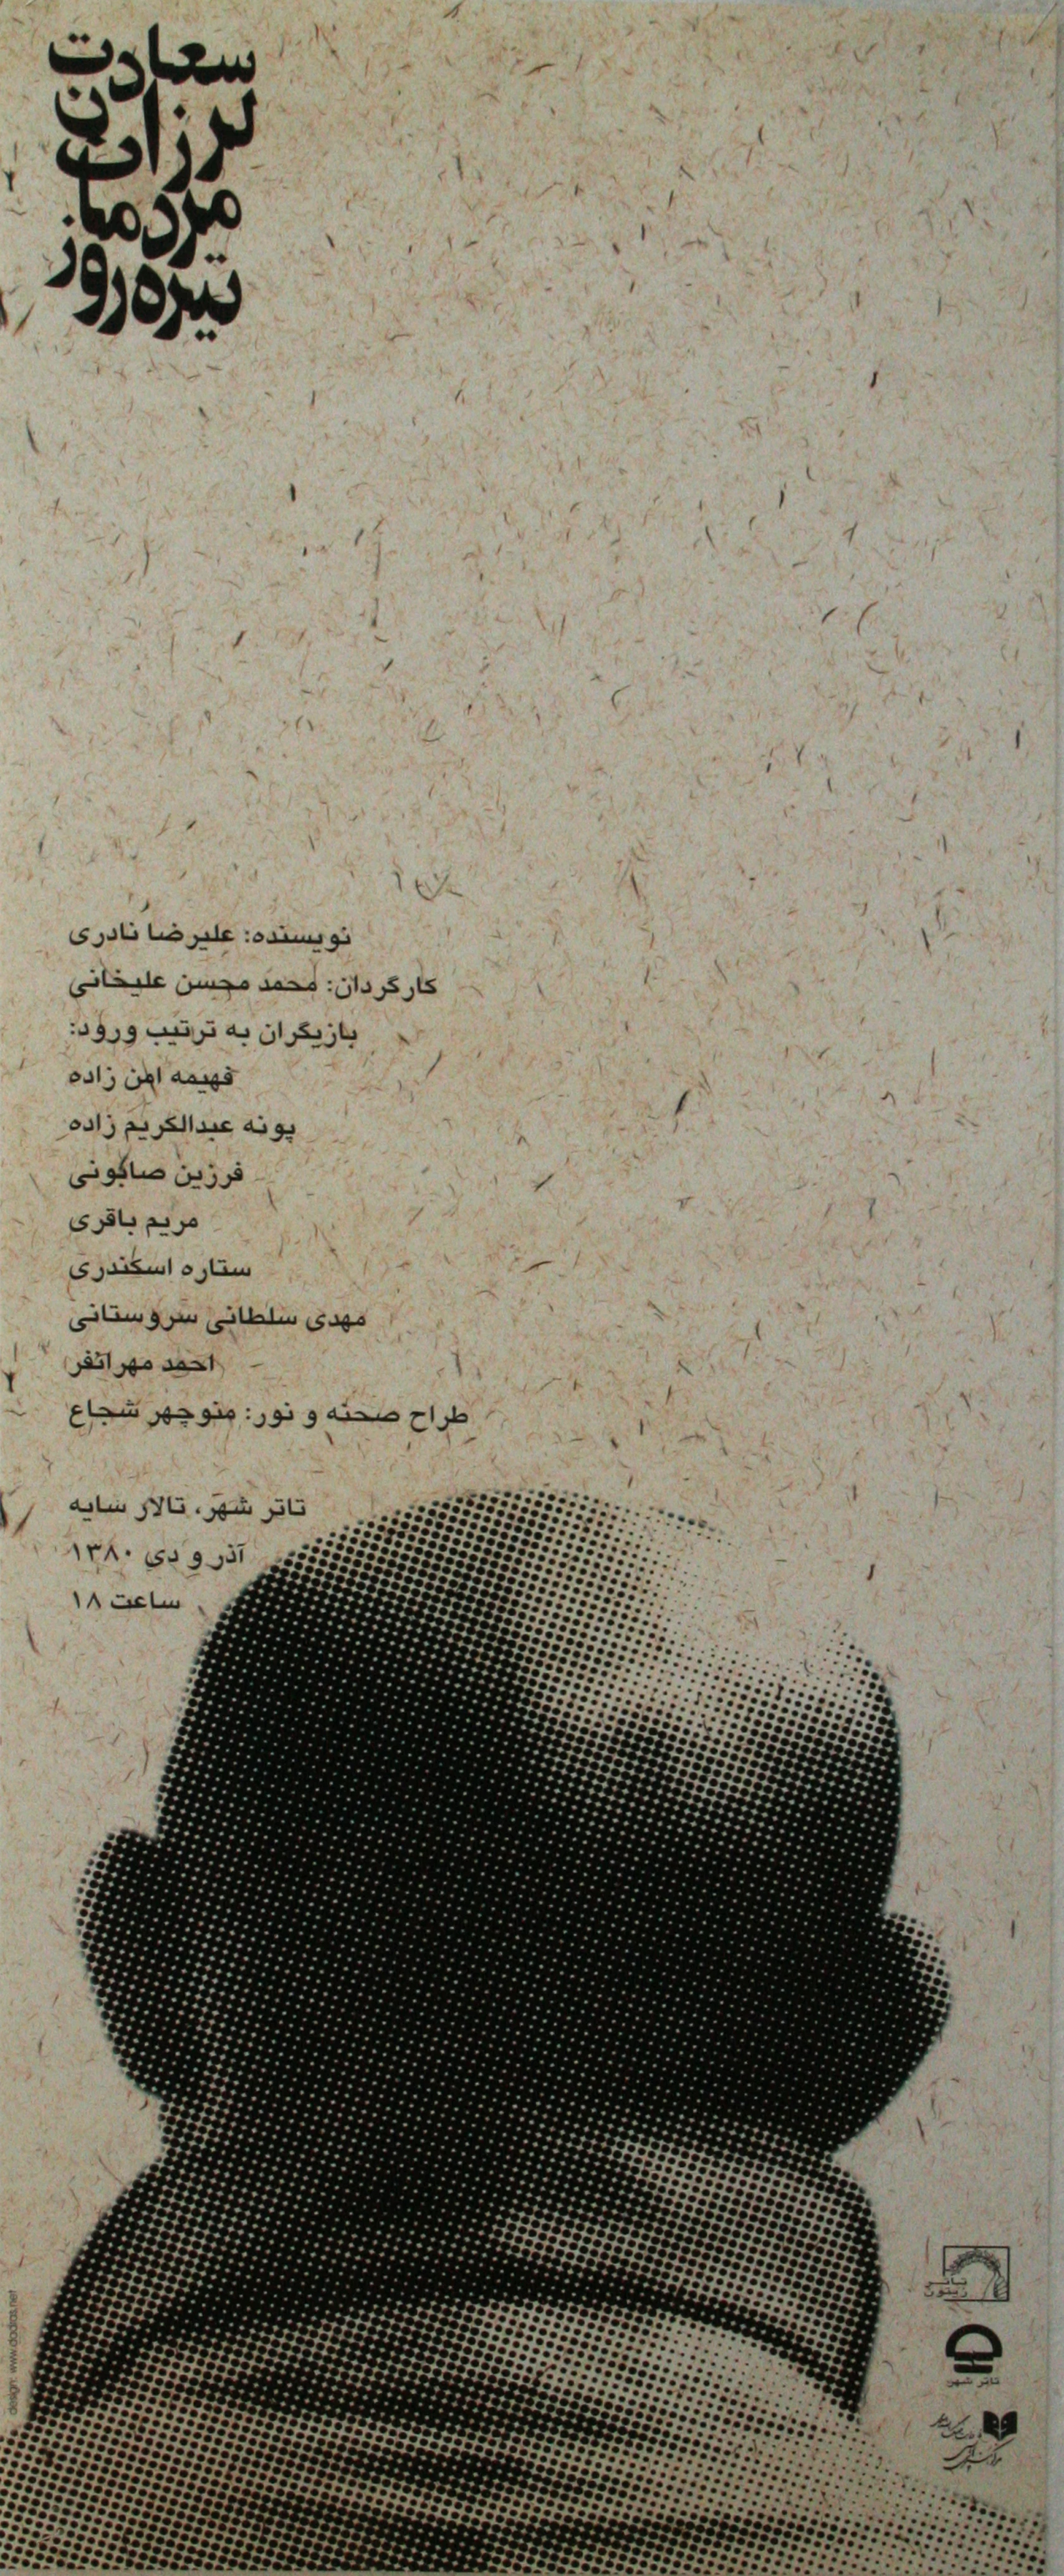 سعادت
لرزان
مردمان
تیره‌روز
نویسنده: علیرضا نادری
کارگردان: محمد محسن علیخانی
بازیگران به ترتیب ورود:
فهیمه امن زاده
پونه عبدالکریم زاده
فرزین صابونی
مریم باقری
ستاره اسکندری
مهدی سلطانی سروستانی
احمد مهرانفر
طراح صحنه و نور: منوچهر شجاع
تاتر شهر، تالار سایه
آذر و دی ۱۳۸۰
ساعت ۱۸
تاتر شهر